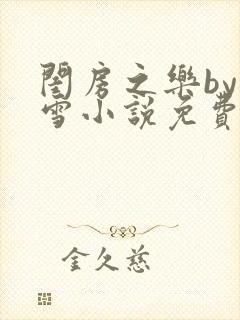 閨房之樂by
雪小說免費
金久慈